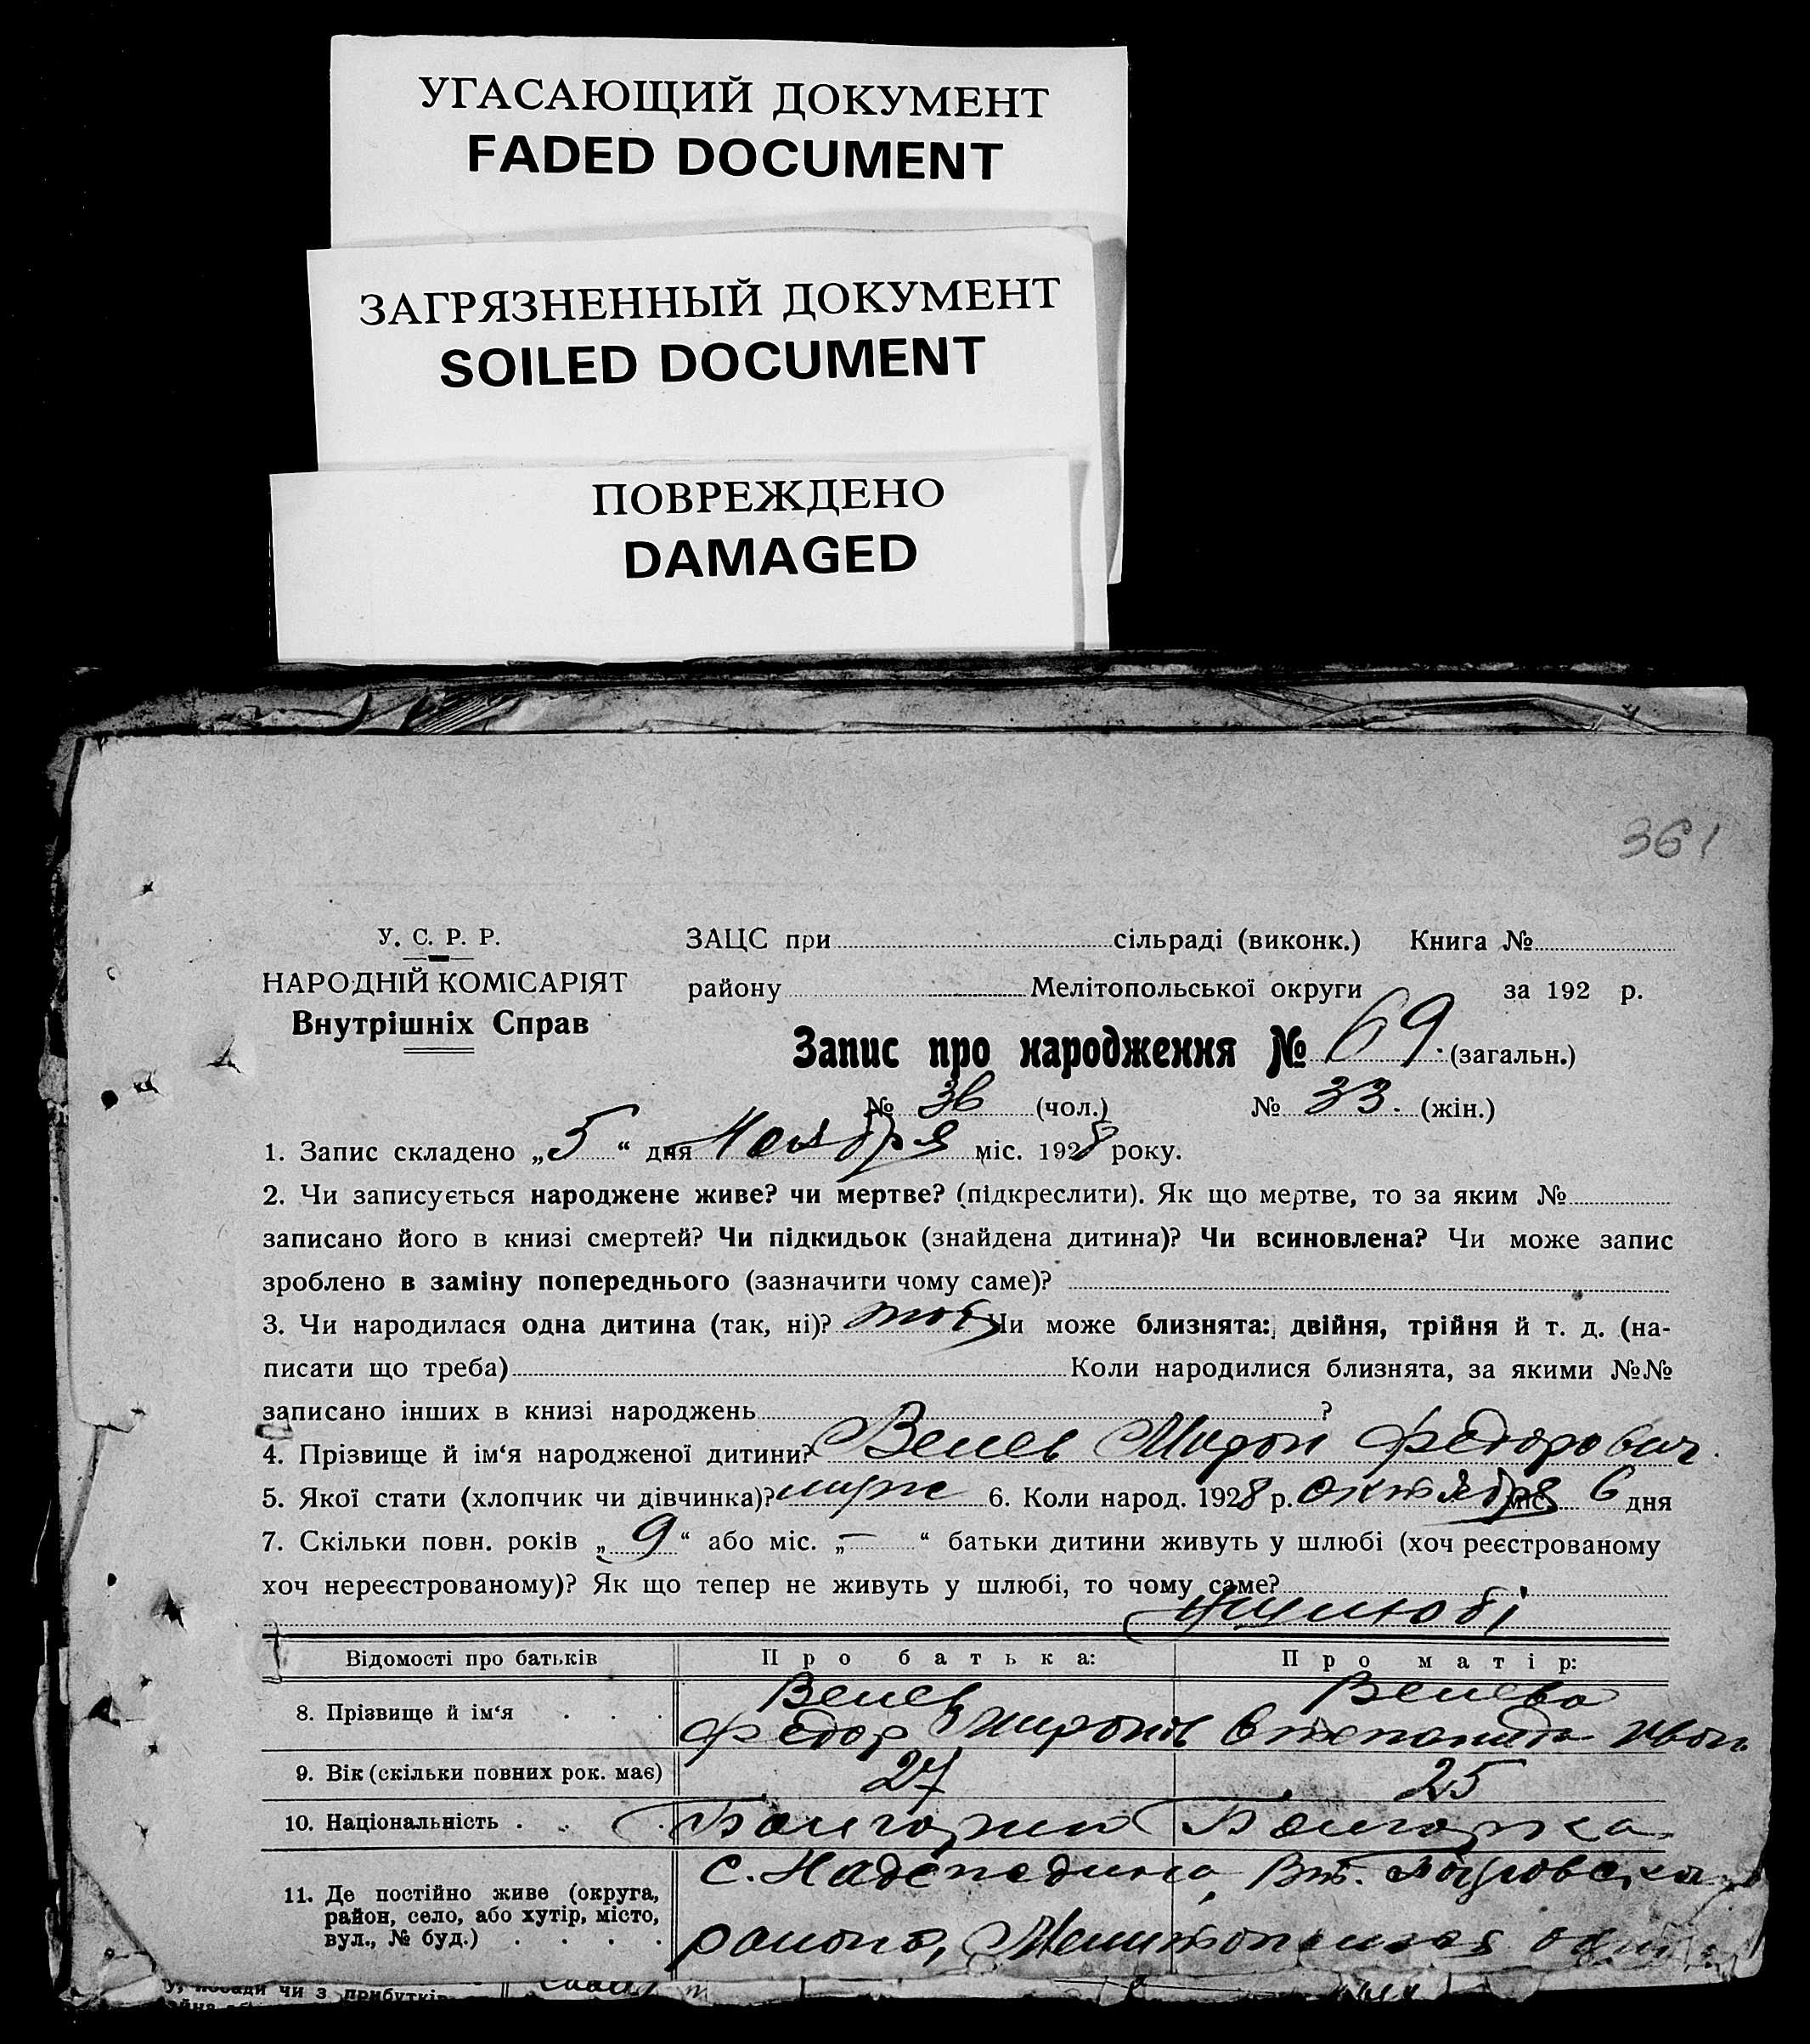 УГАСАЮЩИЙ ДОКУМЕНТ
FADED DOCUMENT
ЗАГРЯЗНЕННЫЙ ДОКУМЕНТ
SOILED DOCUMENT
ПОВРЕЖДЕНО
DAMAGED
361
У. С. Р. Р.
НАРОДНІЙ КОМІСАРІЯТ
Внутрішніх Справ
ЗАЦС при сільраді (виконк.) Книга №
району Мелітопольської округи за 192 р.
Запис про народження № 69. (загальн.)
№ 36 (чол.) № 33. (жін.)
1. Запис складено „5“ дня Ноября міс. 1928 року.
2. Чи записується народжене живе? чи мертве? (підкреслити). Як що мертве, то за яким №
записано його в книзі смертей? Чи підкидьок (знайдена дитина)? Чи всиновлена? Чи може запис
зроблено в заміну попереднього (зазначити чому саме)?
3. Чи народилася одна дитина (так, ні)? Чи може близнята: двійня, трійня й т. д. (на-
писати що треба) Коли народилися близнята, за якими №№
записано інших в книзі народжень ?
4. Прізвище й ім‘я народженої дитини? Велев Мирон Федорович.
5. Якої стати (хлопчик чи дівчинка)? муж 6. Коли народ. 1928 р. октября міс. 6 дня
7. Скільки повн. років „9“ або міс. „—“ батьки дитини живуть у шлюбі (хоч реєстрованому
хоч нереєстрованому)? Як що тепер не живуть у шлюбі, то чому саме?
Відомості про батьків Про батька: Про матір:
8. Прізвище й ім‘я . . . Велев Велева
Федор Миронов Степанида Иван
9. Вік (скільки повних рок. має) 27 25
10. Національність . . . Болгарин Болгарка
11. Де постійно живе (округа, район, село, або хутір, місто, вул., № буд.) . . . . с.
района, Мелитопольская
у, посади чи з прибутків